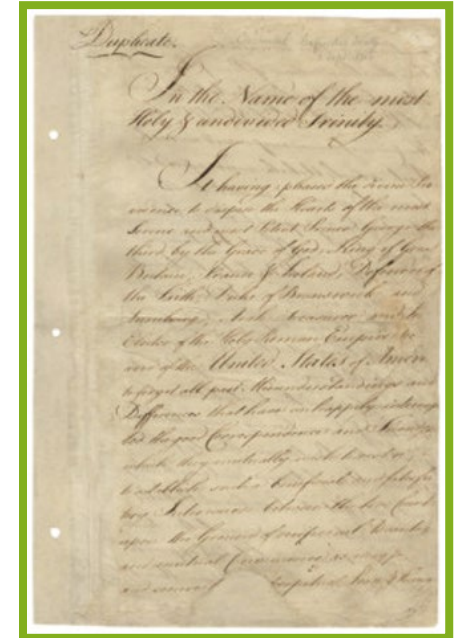 Duplicate.
In the Name of the most
Holy & undivided Trinity.
It having pleased the divine Pro
vidence to dispose the Hearts of the most
Serene and most Potent Prince George the
third by the Grace of God, King of Great
Britain, France & Ireland, Defender of
the Faith, Duke of Brunswick and
Lunebourg, Arch Treasurer and
Elector of the Holy Roman Empire
and of the United States of Amer
to forget all past Misunderstandings and
Differences that have unhappily interrup
ted the good Correspondence and
which they mutually wish to
to establish such a beneficial and satisfac
tory Intercourse between the two
upon the Ground of reciprocal
and mutual Convenience as may
and secure